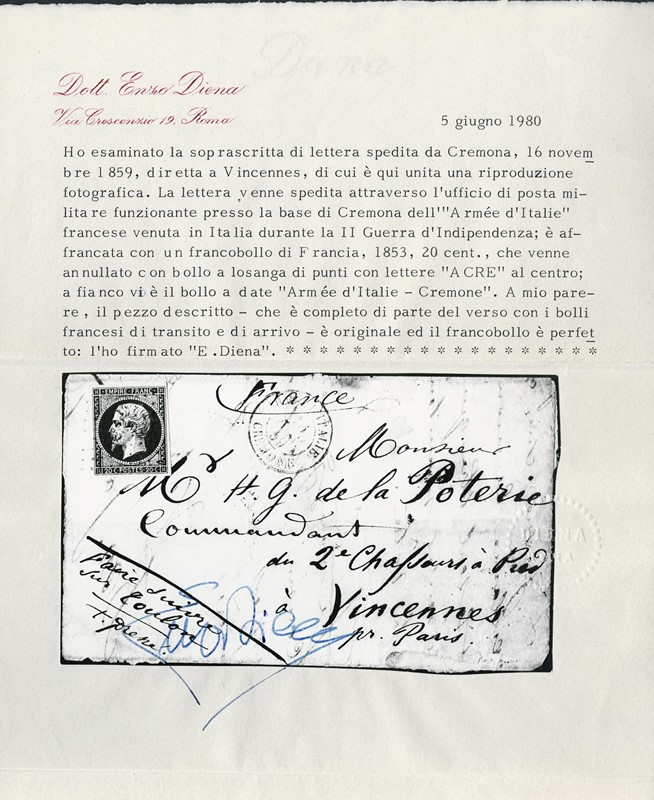 Dott. Enzo Diena
Via Crescenzio 19, Roma
5 giugno 1980
Ho esaminato la soprascritta di lettera spedita da Cremona, 16 novem
bre 1859, diretta a Vincennes, di cui è qui unita una riproduzione
fotografica. La lettera venne spedita attraverso l'ufficio di posta mi-
litare funzionante presso la base di Cremona dell'"Armée d'Italie"
francese venuta in Italia durante la II Guerra d'Indipendenza; è af-
francata con un francobollo di Francia, 1853, 20 cent., che venne
annullato con bollo a losanga di punti con lettere "ACRE" al centro;
a fianco vi è il bollo a date "Armée d'Italie - Cremone". A mio pare-
re, il pezzo descritto - che è completo di parte del verso con i bolli
francesi di transito e di arrivo - è originale ed il francobollo è perfet
to: l'ho firmato "E.Diena". * * * * * * * * * * * * * * * * * * *
EMPIRE FRANC
20 C POSTES 20 C
France
Monsieur
Mr H. G. de la Poterie
Commandant
du 2e Chasseurs à Pied
à Vincennes
pr. Paris.
Faire suivre
sur Toulon
DIENA